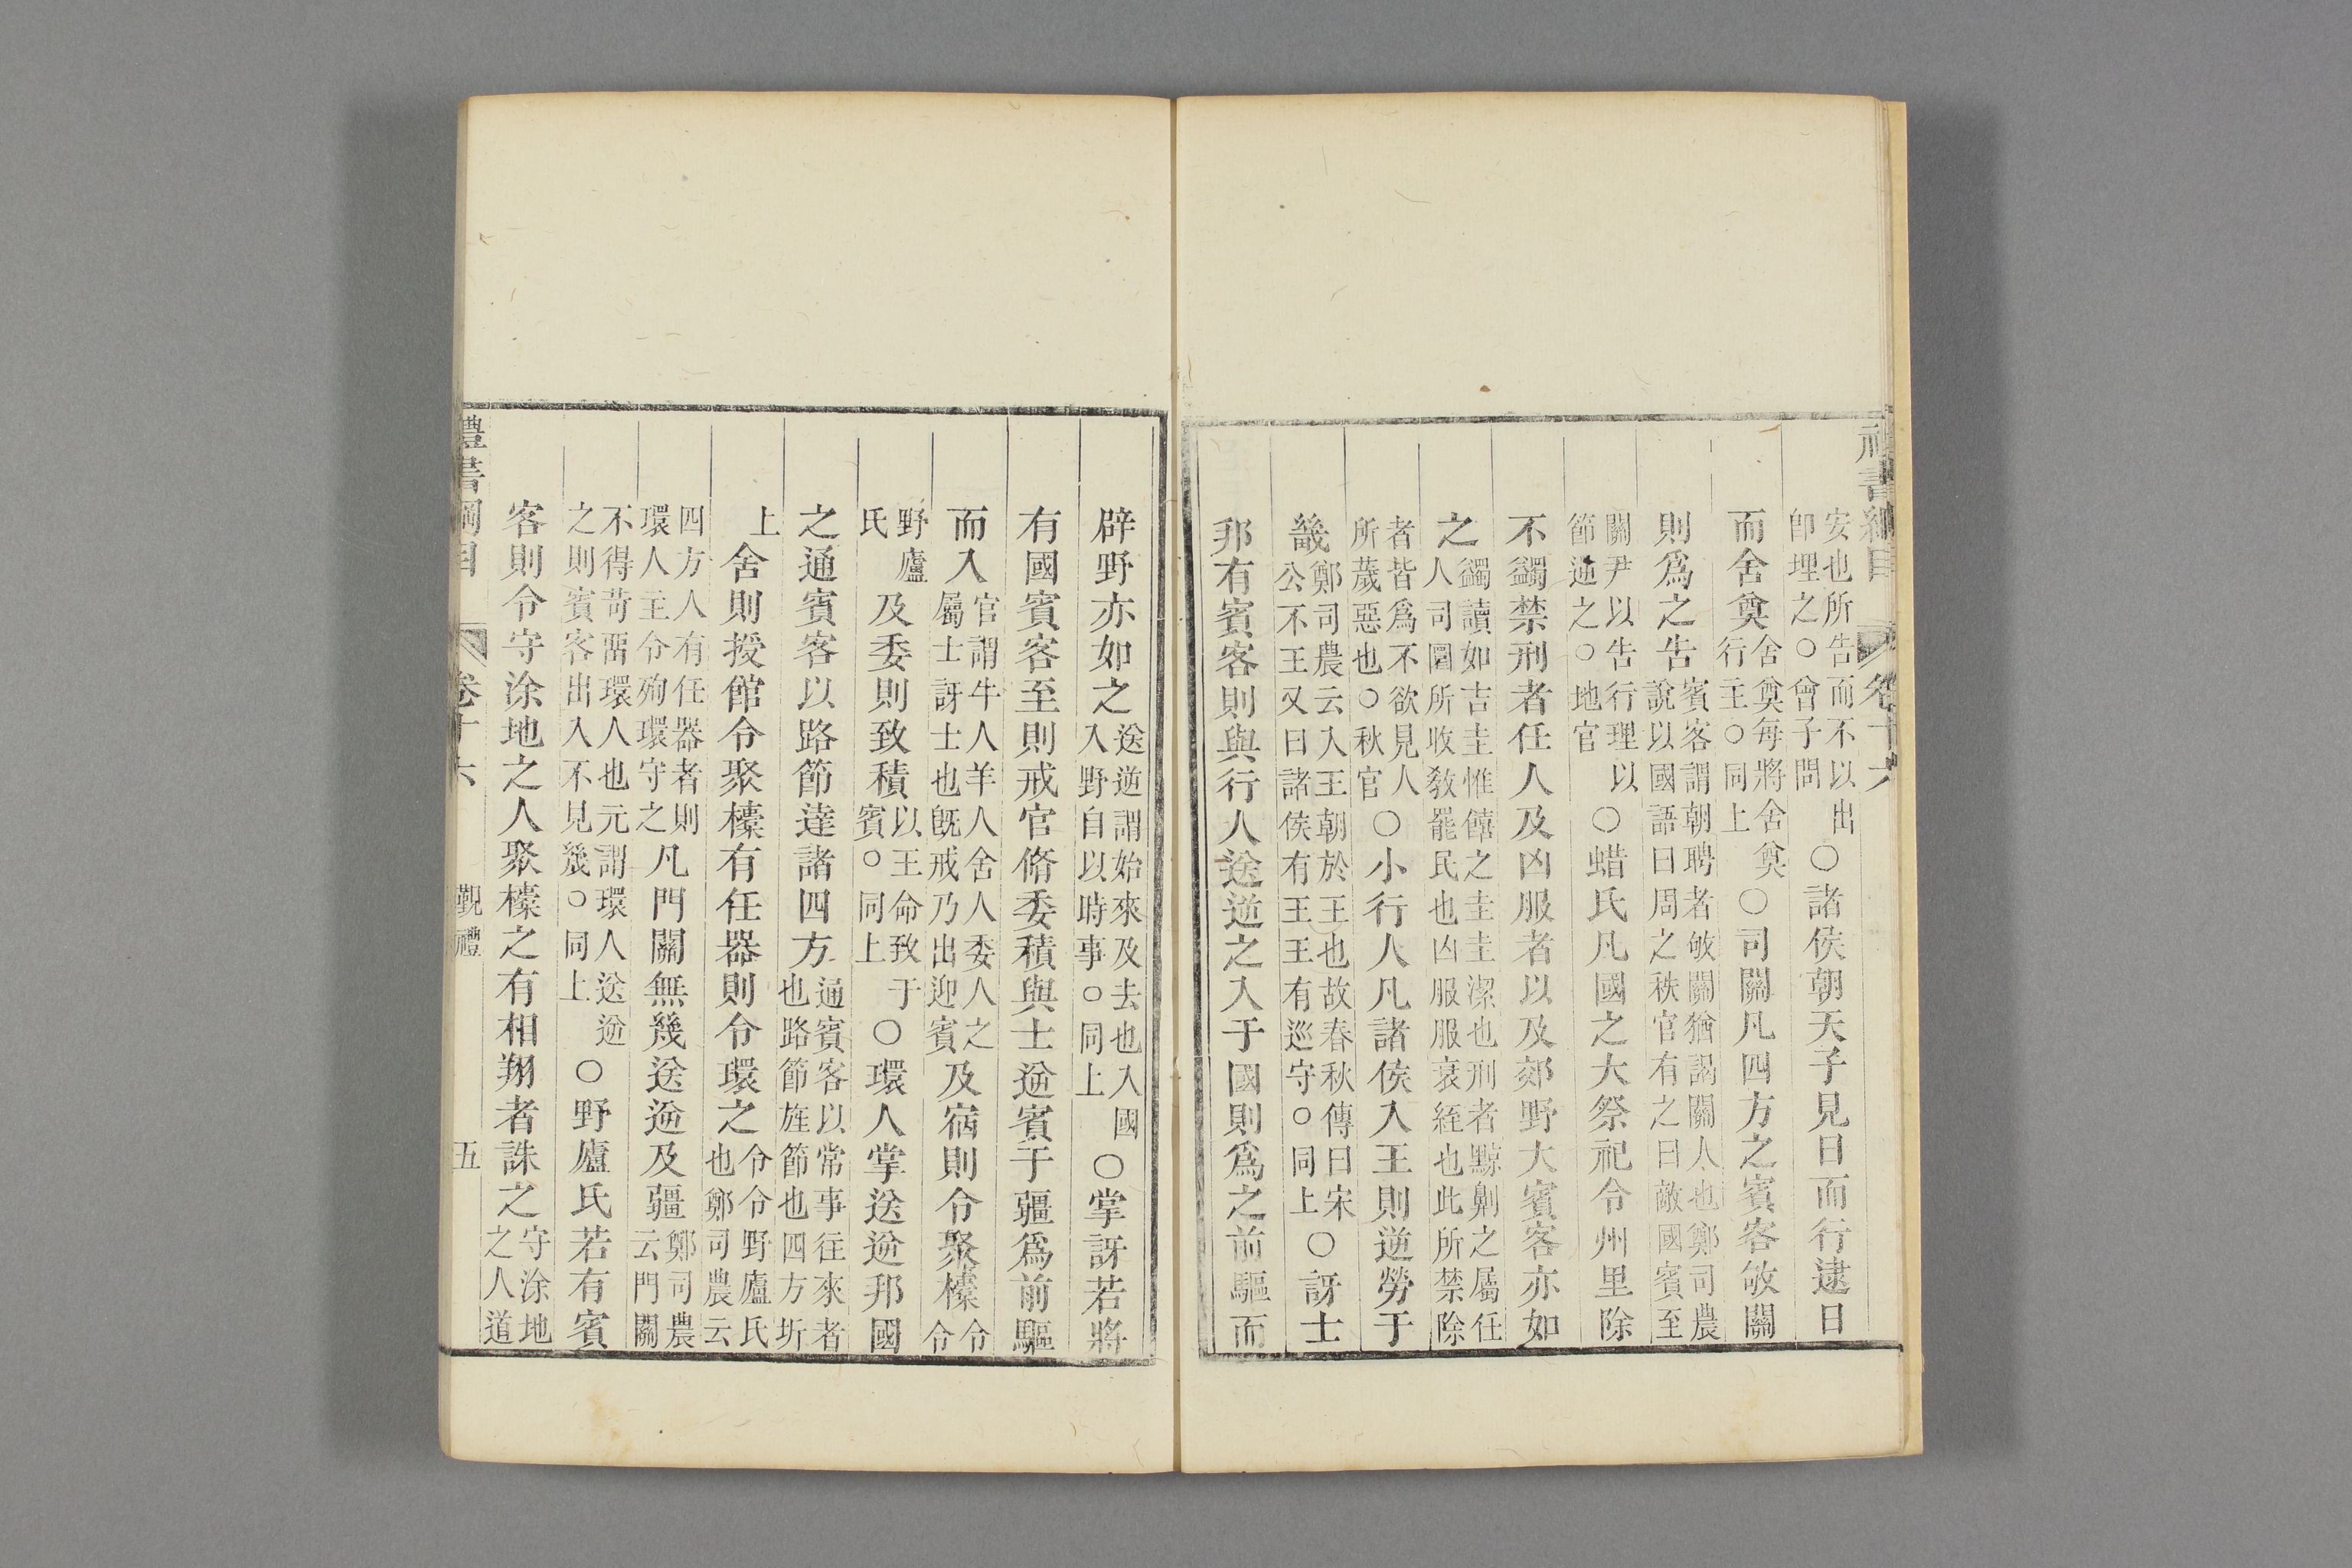 禮書綱目 卷十六
安也所告而不以出即埋之○曾子問○諸侯朝天子見日而行逮日
而舍奠舍奠每將舍奠行主○同上○司關凡四方之賓客敂關
則爲之告賓客謂朝聘者敂關猶謁關人也鄭司農說以國語曰周之秩官有之曰敵國賓至
關尹以告行理以節逆之○地官○蜡氏凡國之大祭祀令州里除
不蠲禁刑者任人及凶服者以及郊野大賓客亦如
之蠲讀如吉圭惟饎之圭圭潔也刑者黥劓之屬任人司圜所收敎罷民也凶服服衰絰也此所禁除
者皆爲不欲見人所薉惡也○秋官○小行人凡諸侯入王則逆勞于
畿鄭司農云入王朝於王也故春秋傳曰宋公不王又曰諸侯有王王有巡守○同上○訝士
邦有賓客則與行人送逆之入于國則爲之前驅而
辟野亦如之送逆謂始來及去也入國入野自以時事○同上○掌訝若將
有國賓客至則戒官脩委積與士逆賓于疆爲前驅
而入官謂牛人羊人舍人委人之屬士訝士也旣戒乃出迎賓及宿則令聚㯕令令
野廬氏及委則致積以王命致于賓○同上○環人掌送逆邦國
之通賓客以路節達諸四方通賓客以常事往來者也路節旌節也四方圻
上舍則授館令聚㯕有任器則令環之令令野廬氏也鄭司農云
四方人有任器者則環人主令殉環守之凡門關無幾送逆及疆鄭司農云門關
不得苛畱環人也元謂環人送逆之則賓客出入不見幾○同上○野廬氏若有賓
客則令守涂地之人聚㯕之有相翔者誅之守涂地之人道
禮書綱目 卷十六 覲禮 五